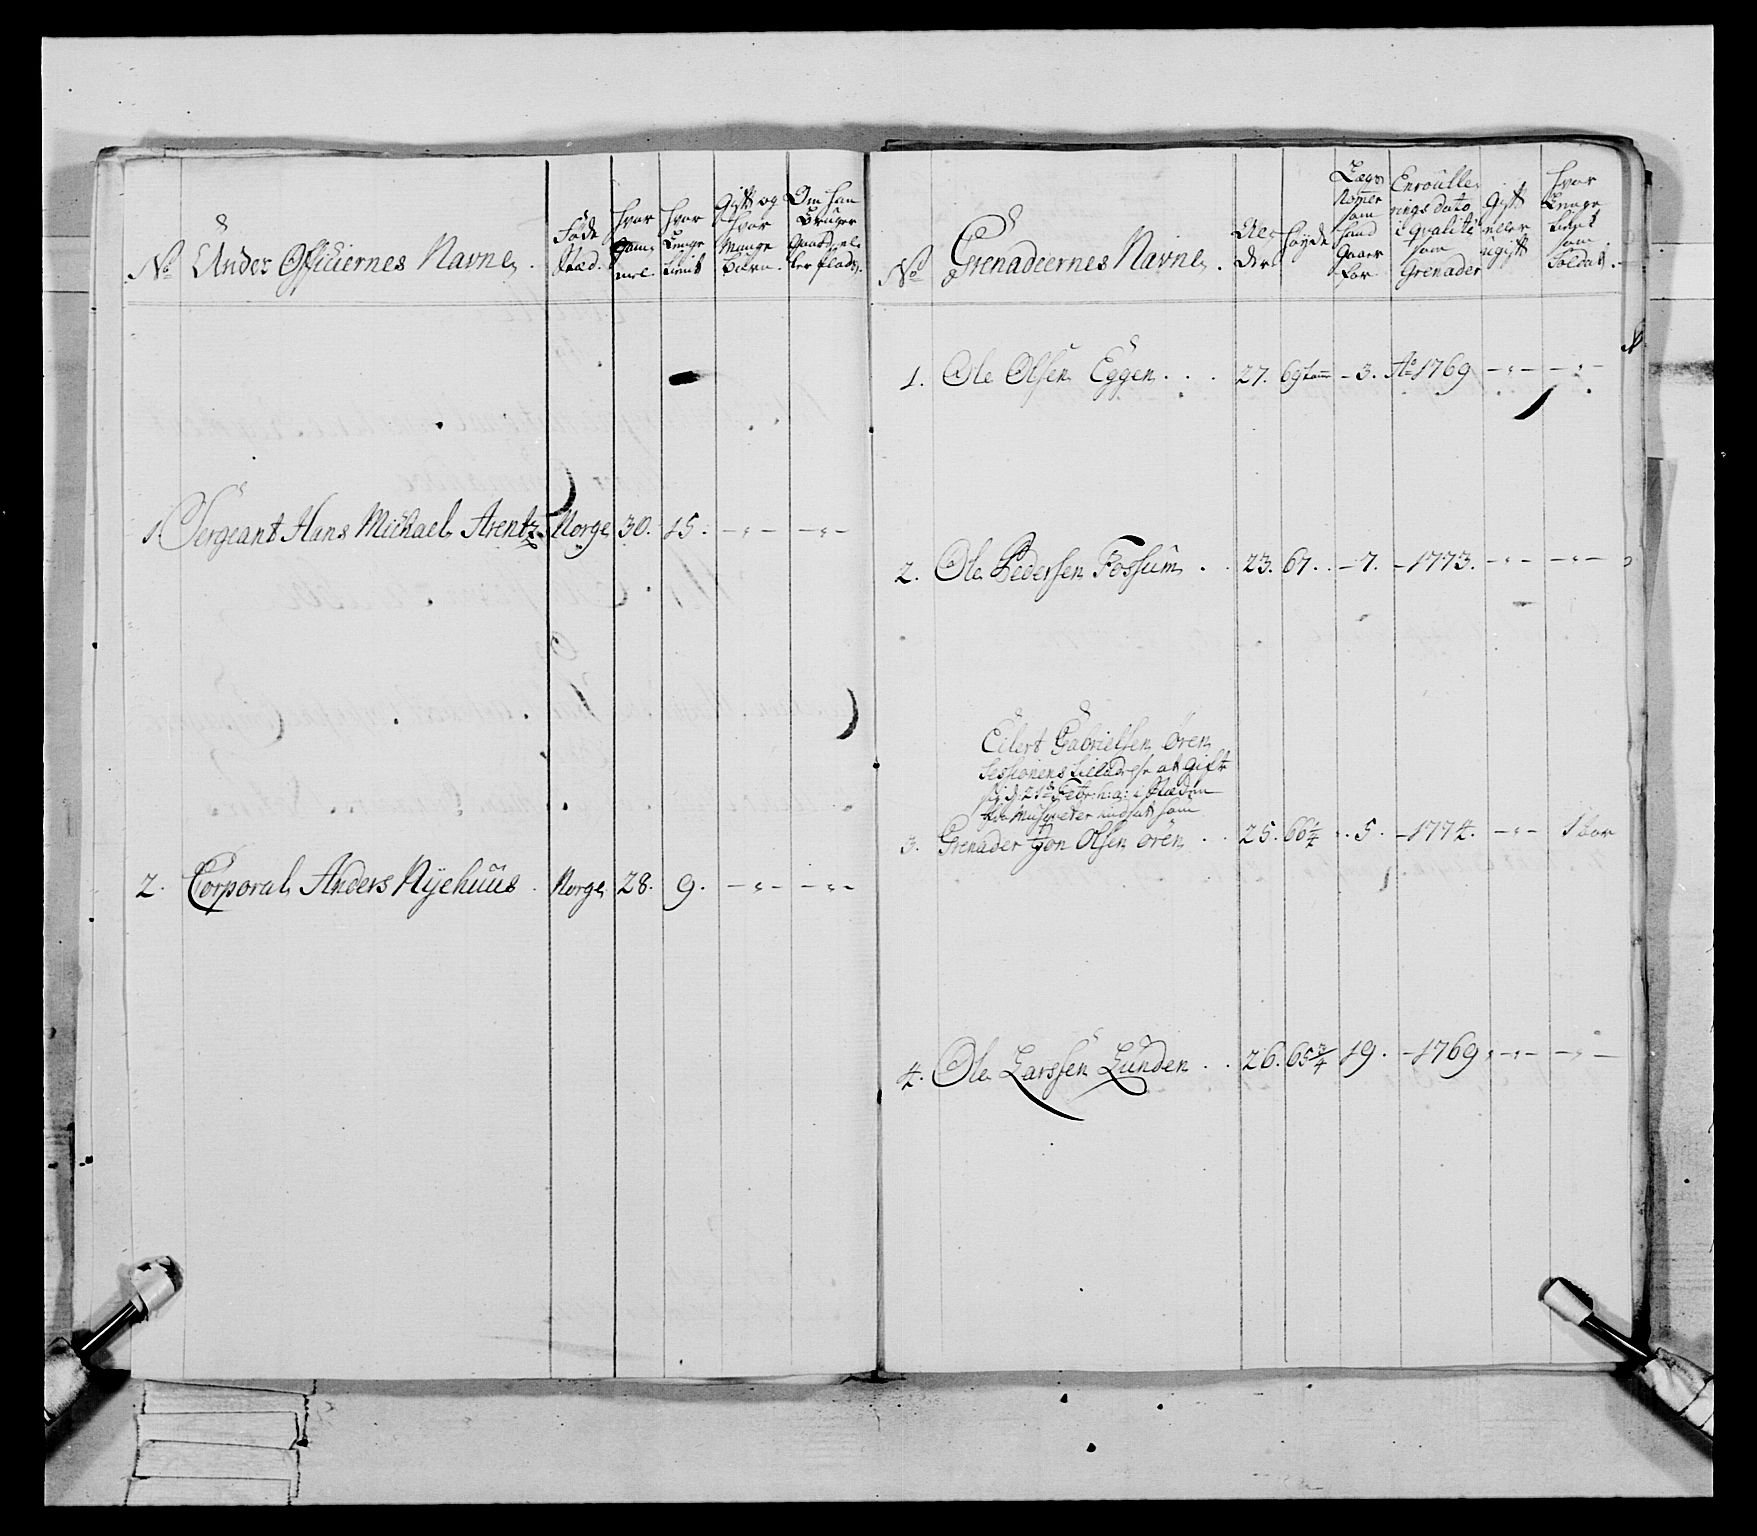 No Under Officiernes Navne. Føde Stæd. hvor Gam= mel hvor Lenge tient Gift og hvor Mange Børn. Om han Bruger Gaard, el= ler plads.
1. Sergeant Hans Michael Arentz. Norge 30. 15. – „ – – „ –
2. Corporal Anders Nÿehuus. Norge 28. 9. – „ – – „ –
No Grenadeernes Navne. Al= der høyde Lægs Nomer som hand Gaaer for Enroulle= rings dato i qvalite som Grenader Gift eller ugift hvor Lenge tient som Soldat.
1. Ole Olsen Eggen . . . 27. 69 tom̅ – 3. Ao 1769 – „ – – „ –
2. Ole Pedersen Fossum . . 23. 67. . – 7. – 1773. – „ – – „ –
Eilert Gabrielsen Ören
Sessionens at Gift
d: 21de Febr: h: a: i Stæden
Musqueter indsat som
3. Grenader Jon Olsen ören . . 25. 66 1/4 . . 5. – 1774. – „ – 1 aar
4. Ole Larssen Lunden . . 26. 65 3/4 19. – 1769 – „ – – „ –